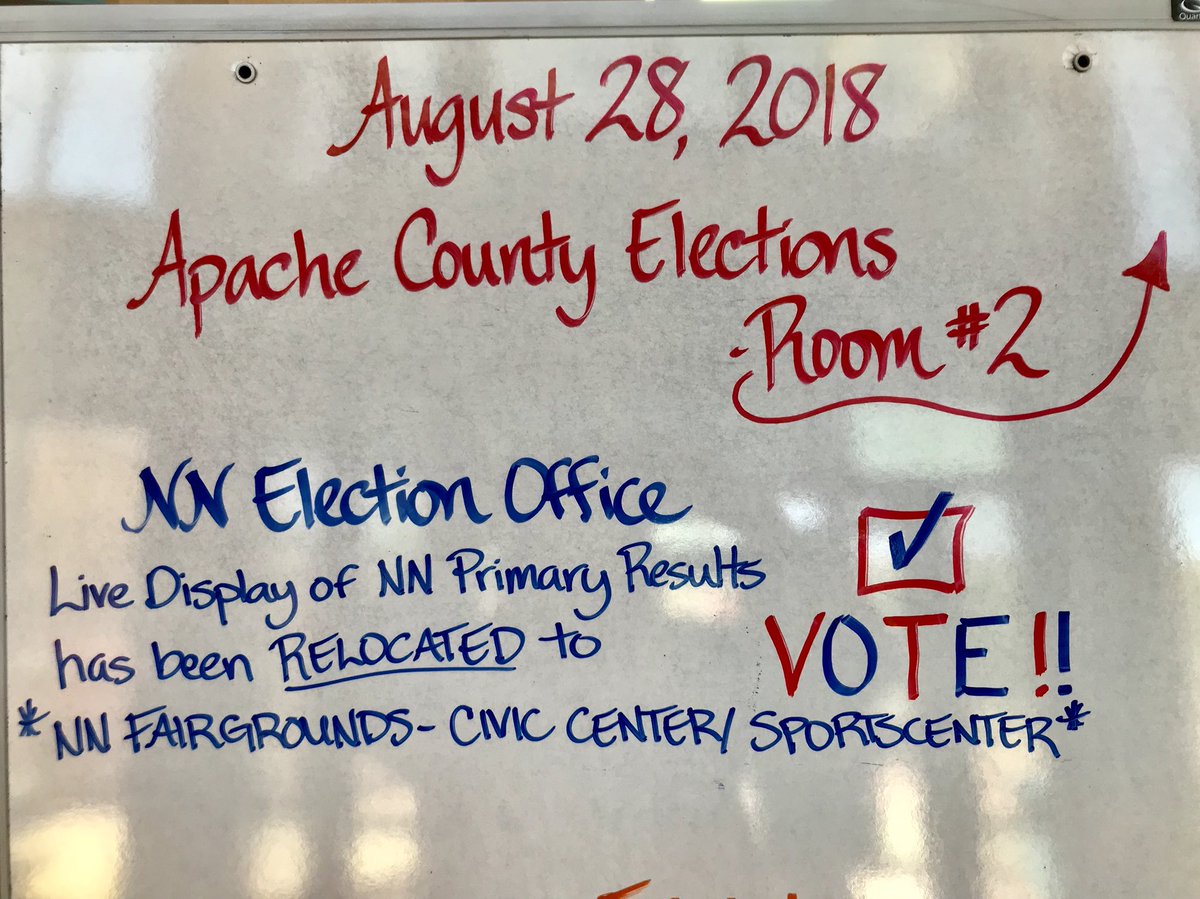 August 28, 2018
Apache County Elections
-Room #2
NN Election Office
Live Display of NN Primary Results
has been RELOCATED to
VOTE!!
*NN FAIRGROUNDS- CIVIC CENTER/ SPORTSCENTER*